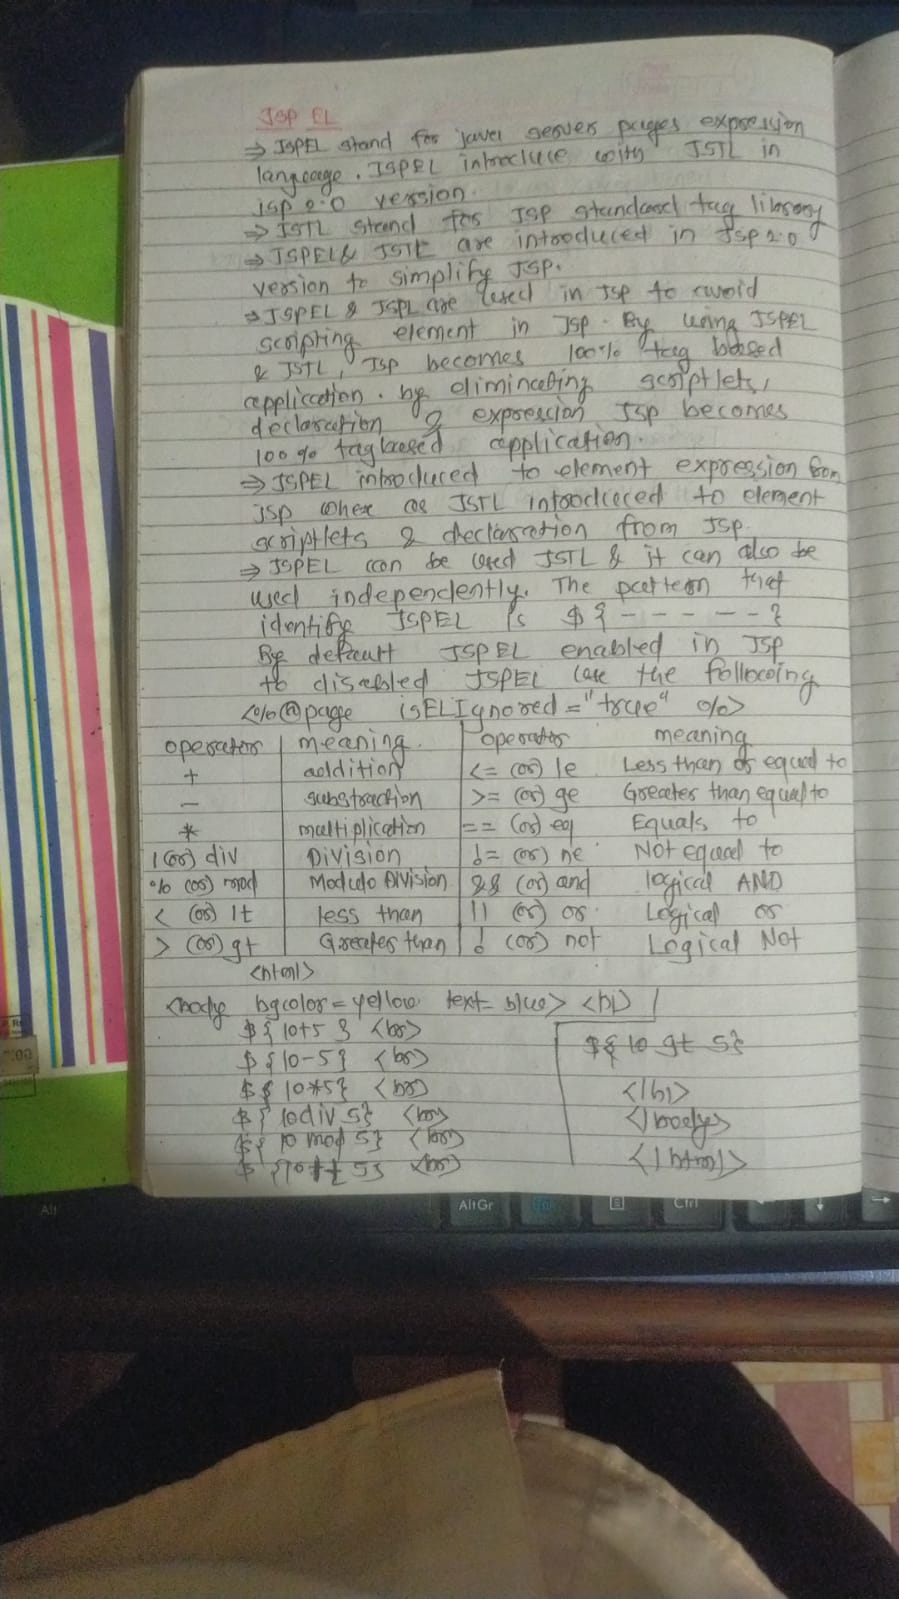 JSP EL
⇒ JSPEL stand for java server pages expression
language. JSPEL introduce with JSTL in
jsp 2.0 version.
⇒ JSTL stand for JSP standard tag library
⇒ JSPEL & JSTL are introduced in Jsp 2.0
version to simplify JSP.
⇒ JSPEL & JSPL are used in JSP to avoid
scripting element in Jsp. By using JSPEL
& JSTL, Jsp becomes 100% tag based
application. by eliminating scriptlets,
declaration & expression Jsp becomes
100% tag based application.
⇒ JSPEL introduced to element expression from
Jsp where as JSTL introduced to element
scriptlets & declaration from JSP.
⇒ JSPEL can be used JSTL & it can also be
used independently. The pattern that
identify JSPEL is ${ - - - - - - }
By default JSPEL enabled in JSP
to disabled JSPEL use the following
<%@page isELIgnored="true" %>
operator meaning. operator meaning
+ addition <= (or) le Less than or equal to
- substraction >= (or) ge Greater than equal to
* multiplication == (or) eq Equals to
/ (or) div Division != (or) ne Not equal to
% (or) mod Modulo Division && (or) and logical AND
< (or) lt less than || (or) or Logical or
> (or) gt Greater than ! (or) not Logical Not
<html>
<body bgcolor=yellow text=blue> <h1>
${10+5} <br>
${10-5} <br>
${10*5} <br>
${10div 5} <br>
${10 mod 5} <br>
${10 lt 5} <br>
${10 gt 5}
</h1>
</body>
</html>
AltGr
Ctrl
Alt